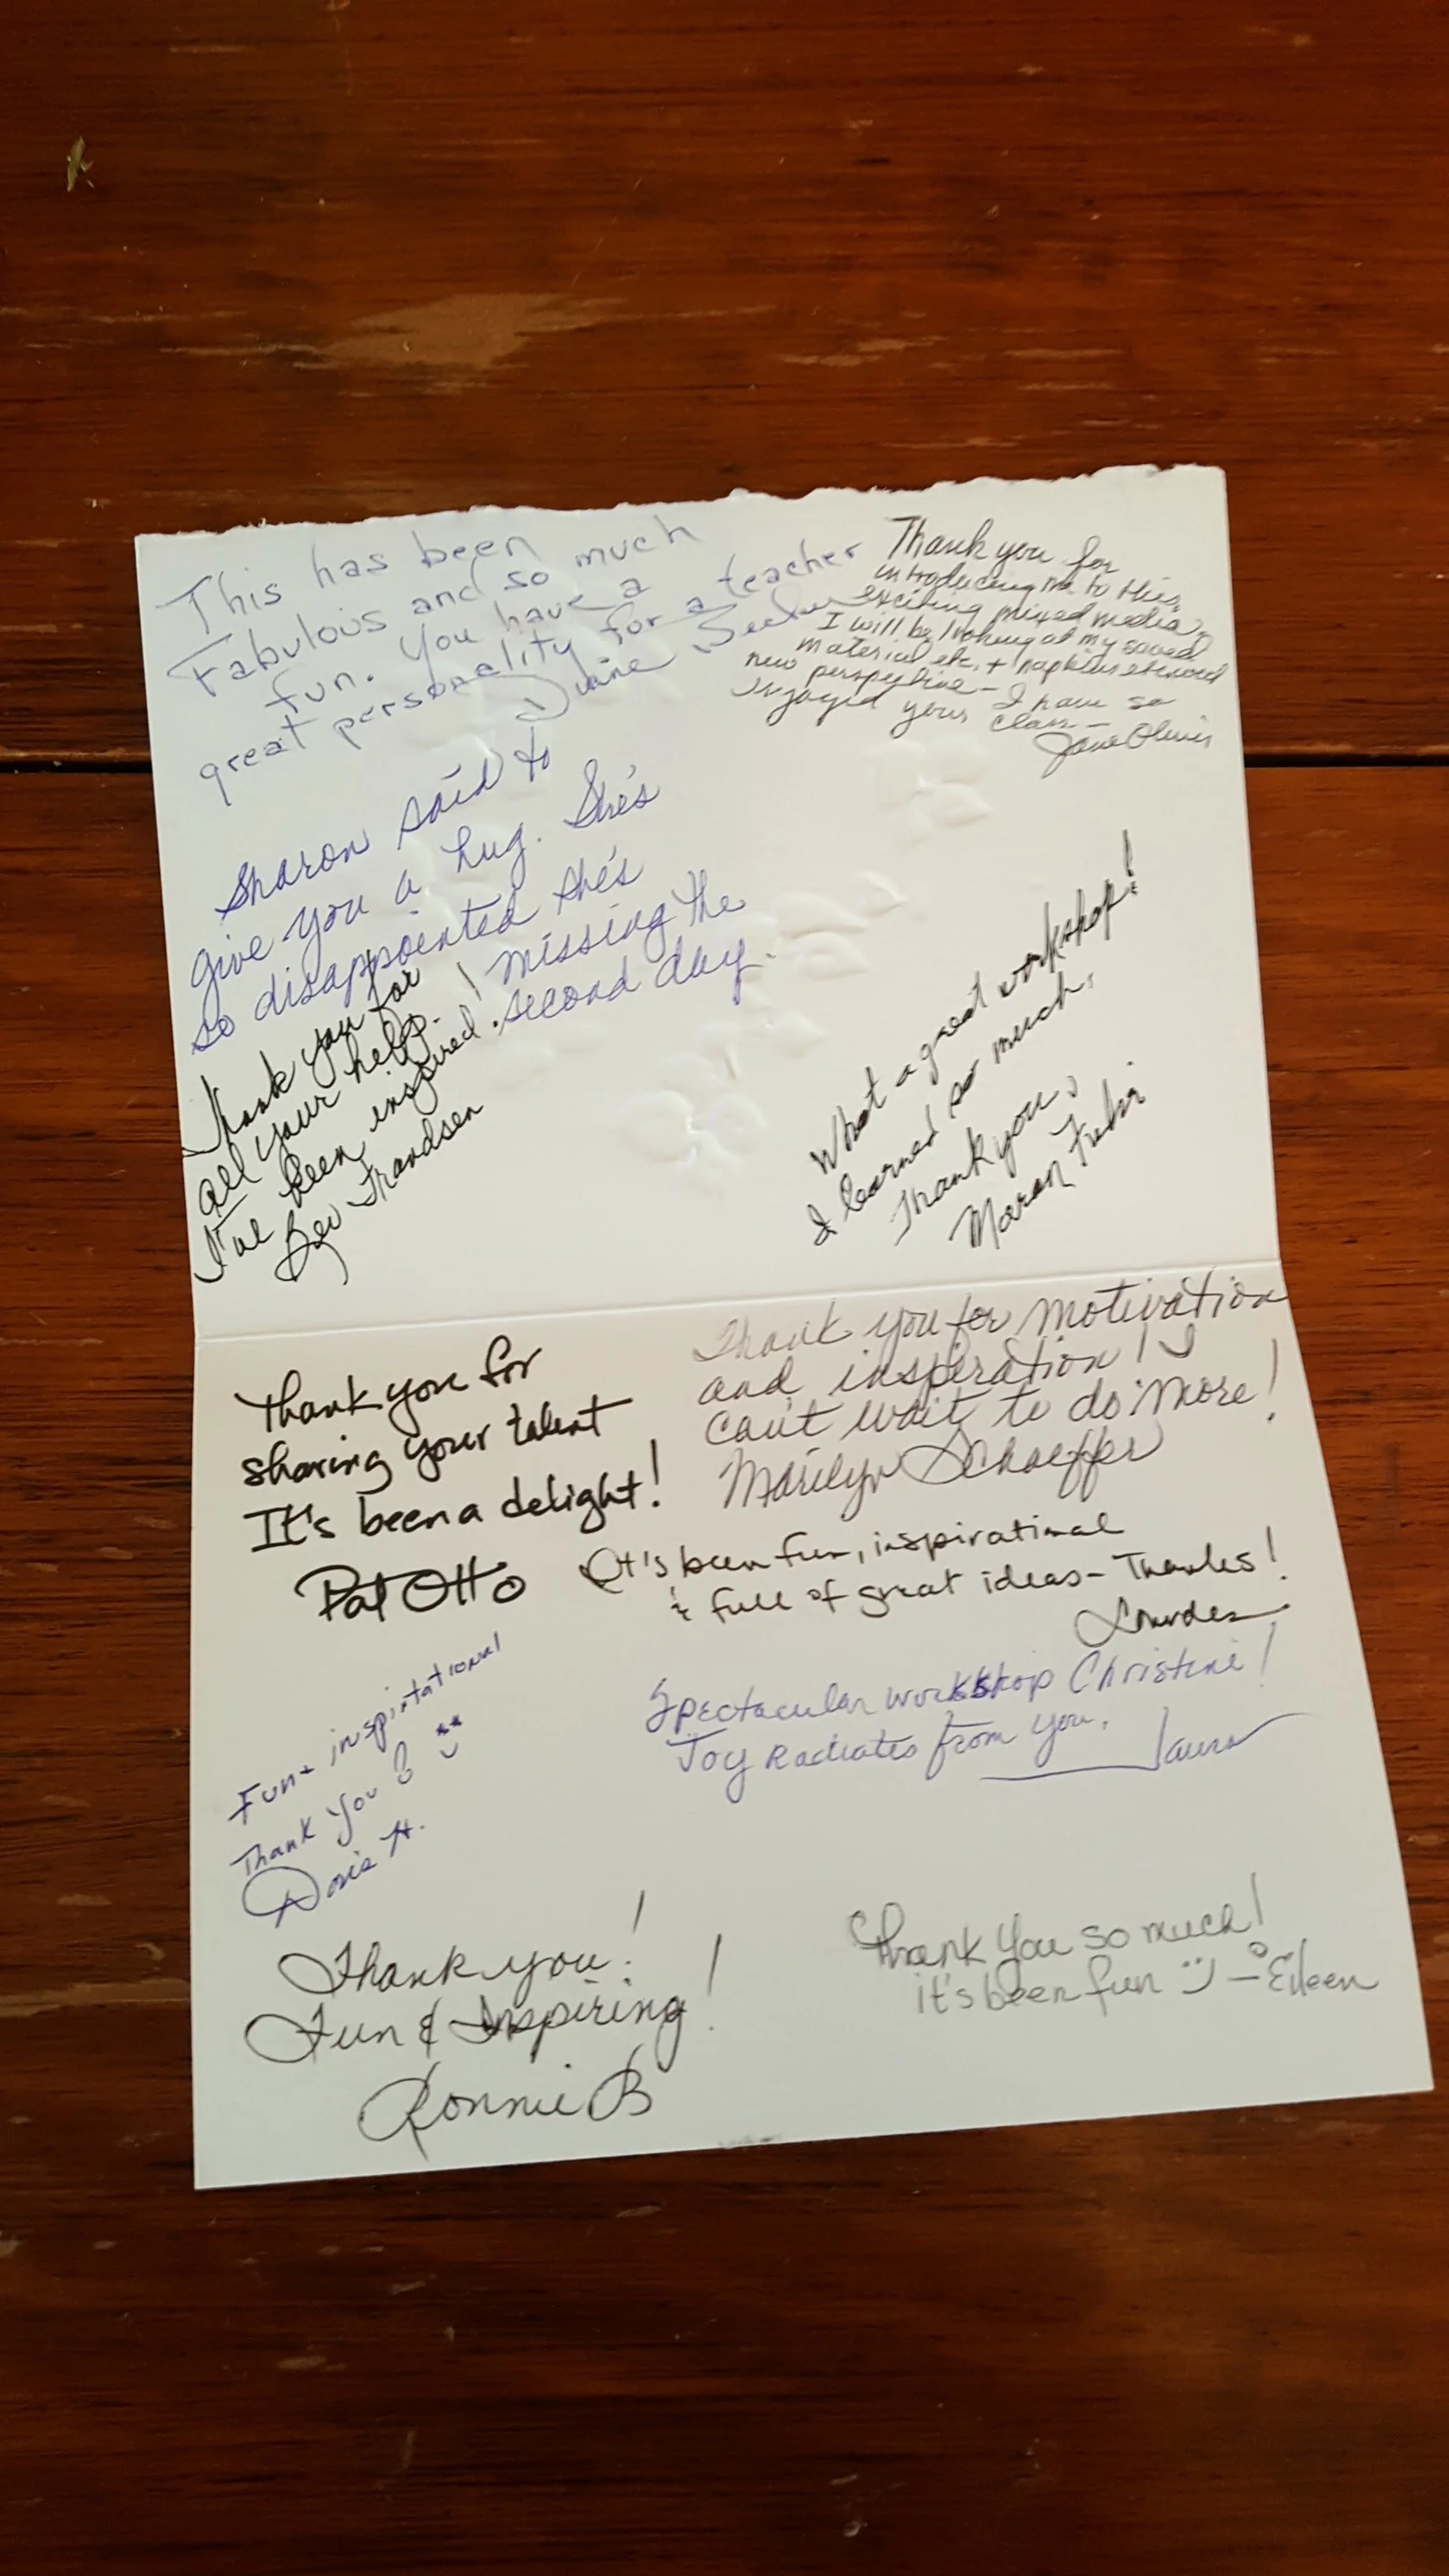 This has been
Fabulous and so much
fun. You have a
great personality for a teacher
Thank you for
introducing me to this
exciting mixed media.
I will be looking at my saved
material etc. + napkins
new perspective - I have so
enjoyed your class -
Jane
Sharon said to
give you a hug. She's
so disappointed she's
missing the
second day.
Thank you for
all your help.
I've been inspired!
Bev Frandsen
What a great workshop!
I learned so much.
Thank you,
Thank you for
sharing your talent
It's been a delight!
Pat Otto
Thank you for motivation
and inspiration! I
can't wait to do more!
Marilyn Schaeffer
It's been fun, inspirational
& full of great ideas - Thanks!
Lourdes
Spectacular workshop Christine!
Joy Radiates from you.
Laura
Fun + inspirtational
Thank You!
Doris H.
Thank you!
Fun & Inspiring!
Ronnie B
Thank You so much!
it's been fun :) - Eileen